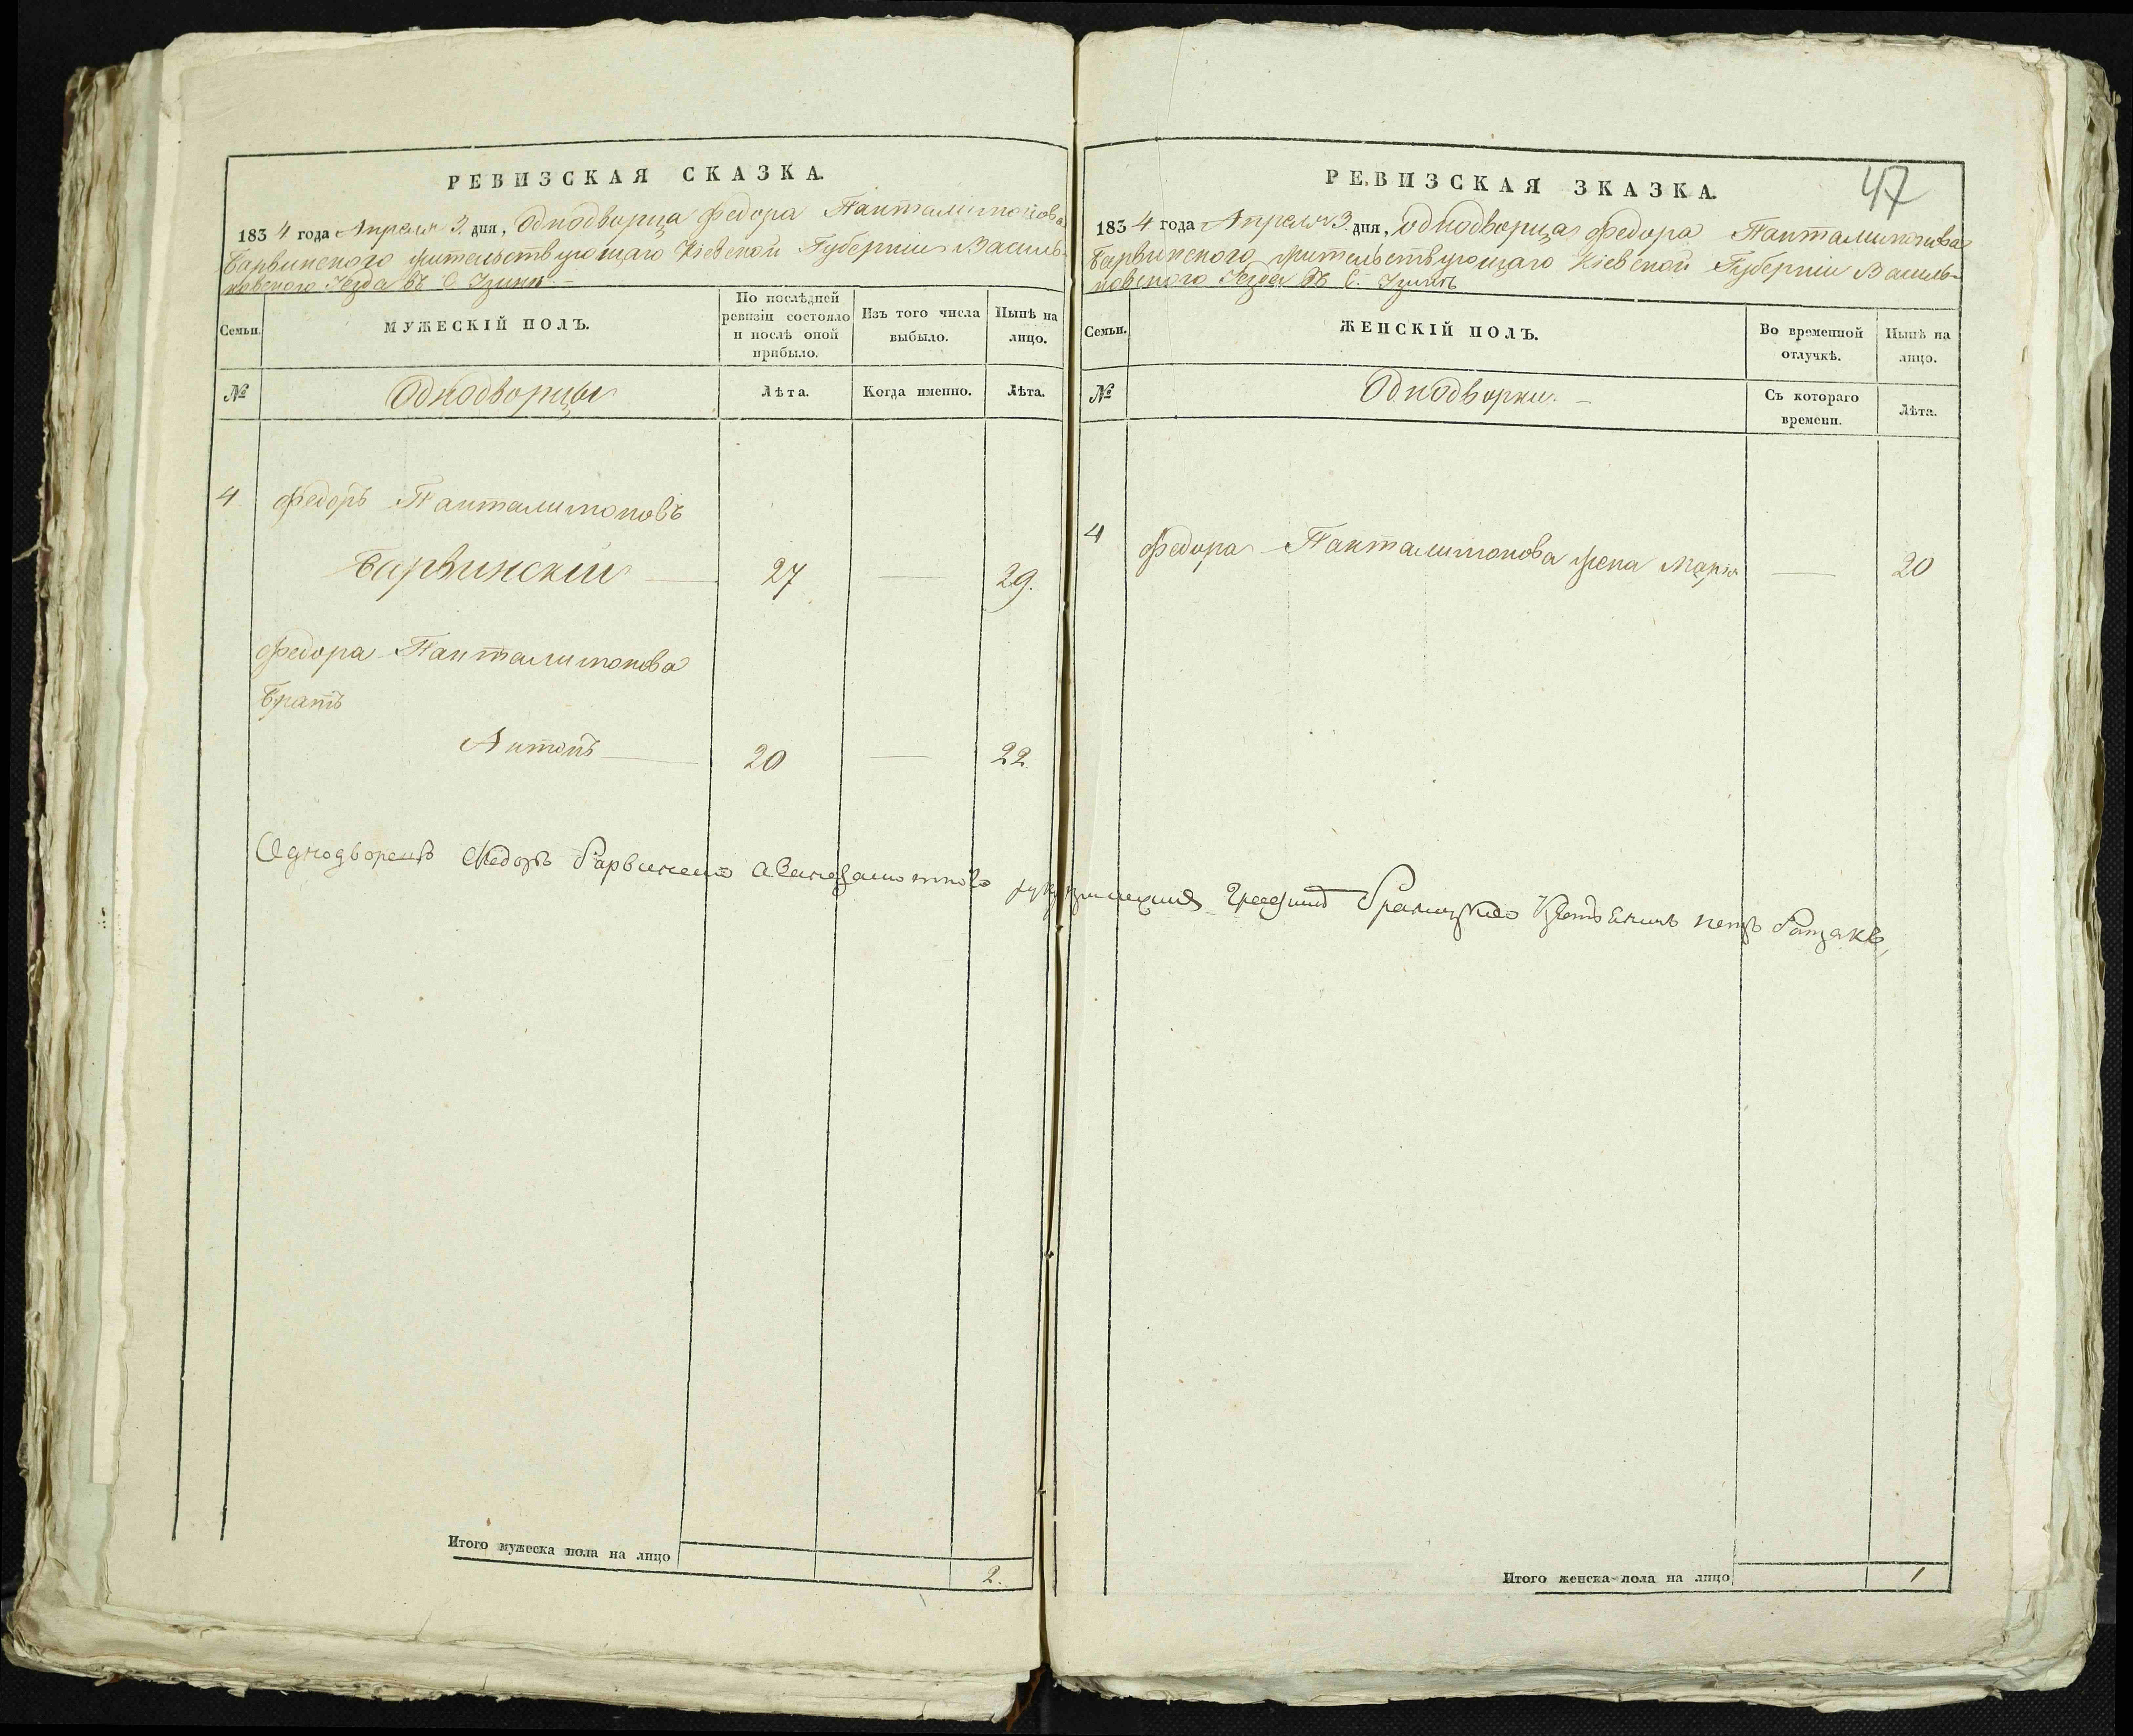 РЕВИЗСКАЯ СКАЗКА.
1834 года Апреля 3. дня, Однодворца Федора Панталимонова
Барвинского жительствующаго Кіевской Губерніи Василь-
ковского Уезда въ С.
Семьи.
МУЖЕСКІЙ ПОЛЪ.
По послѣдней ревизіи состояло и послѣ оной прибыло.
Изъ того числа выбыло.
Нынѣ на лицо.
№
Однодворцы
Лѣта.
Когда именно.
Лѣта.
4 Федоръ Панталимоновъ
Барвинскій — 27 — 29.
Федора Панталимонова
Братъ
Антонъ — 20 — 22
Однодворецъ Федоръ Барвинский а вместо
Итого мужеска пола на лицо 2.
47
РЕВИЗСКАЯ ЗКАЗКА.
1834 года Апреля 3. дня, Однодворца Федора Панталимонова
Барвинского жительствующаго Кіевской Губерніи Василь-
ковского Уезда въ С.
Семьи.
ЖЕНСКІЙ ПОЛЪ.
Во временной отлучкѣ.
Нынѣ на лицо.
№
Однодворки. —
Съ котораго времени.
Лѣта.
4 Федора Панталимонова жена Марія — 20
Итого женска пола на лицо 1